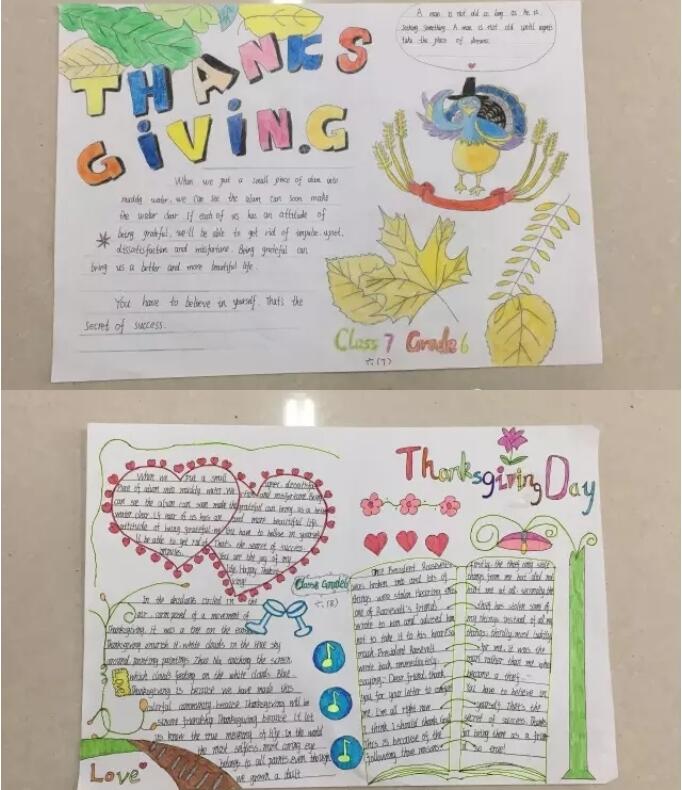 THANKS
GIVIN.G
A man is not old as long as he is
seeking something. A man is not old until regrets
take the place of dreams.
When we put a small piece of alum into
muddy water, we can see the alum can soon make
the water clear. If each of us has an attitude of
being grateful, we'll be able to get rid of impulse, upset,
dissatisfaction and misfortune. Being grateful can
bring us a better and more beautiful life.
You have to believe in yourself. That's the
secret of success.
Class 7 Grade 6
六.(7)
Thanksgiving Day
When we put a small
piece of alum into muddy water. We
can see the alum can soon make the
water clear. If each of us has an
attitude of being grateful, we
'll be able to get rid of
and misfortune. Being
grateful can bring us a better
and more beautiful life.
You have to believe in yourself
That's the secret of success.
you are the joy of my
life. Happy Thanks-
giving!
Class Grade6
六.(8)
In the
air, composed of a movement of
Thanksgiving. It was a tree on the
Thanksgiving white clouds in the blue sky
around
which cloud floating on the white clouds. Blue
Thanksgiving is because we have made this
colorful community, because Thanksgiving will be
friendship. Thanksgiving, because it let
us know the true meaning of life. In the world
the most selfless, most caring
belongs to all
we
Love
Love
Once President Roosevelt
was broken into and lots of
things were stolen. Hearing this
one of Roosevelt's friends
wrote to him and advised him
not to take it to his heart so
much. President Roosevelt
wrote back immediately,
saying: Dear friend, thank
you for your letter to
me. I'm all right now.
I think I should thank God.
This is because of the
following three reasons:
firstly, the thief only stole
things from me but did not
hurt me at all; secondly the
thief has stolen some of
my things instead of all my
things; thirdly, most luckily
for me, it was the
man rather than me who
became a thief.
You have to believe in
yourself. That's the
secret of success. Thanks
for being there as a friend